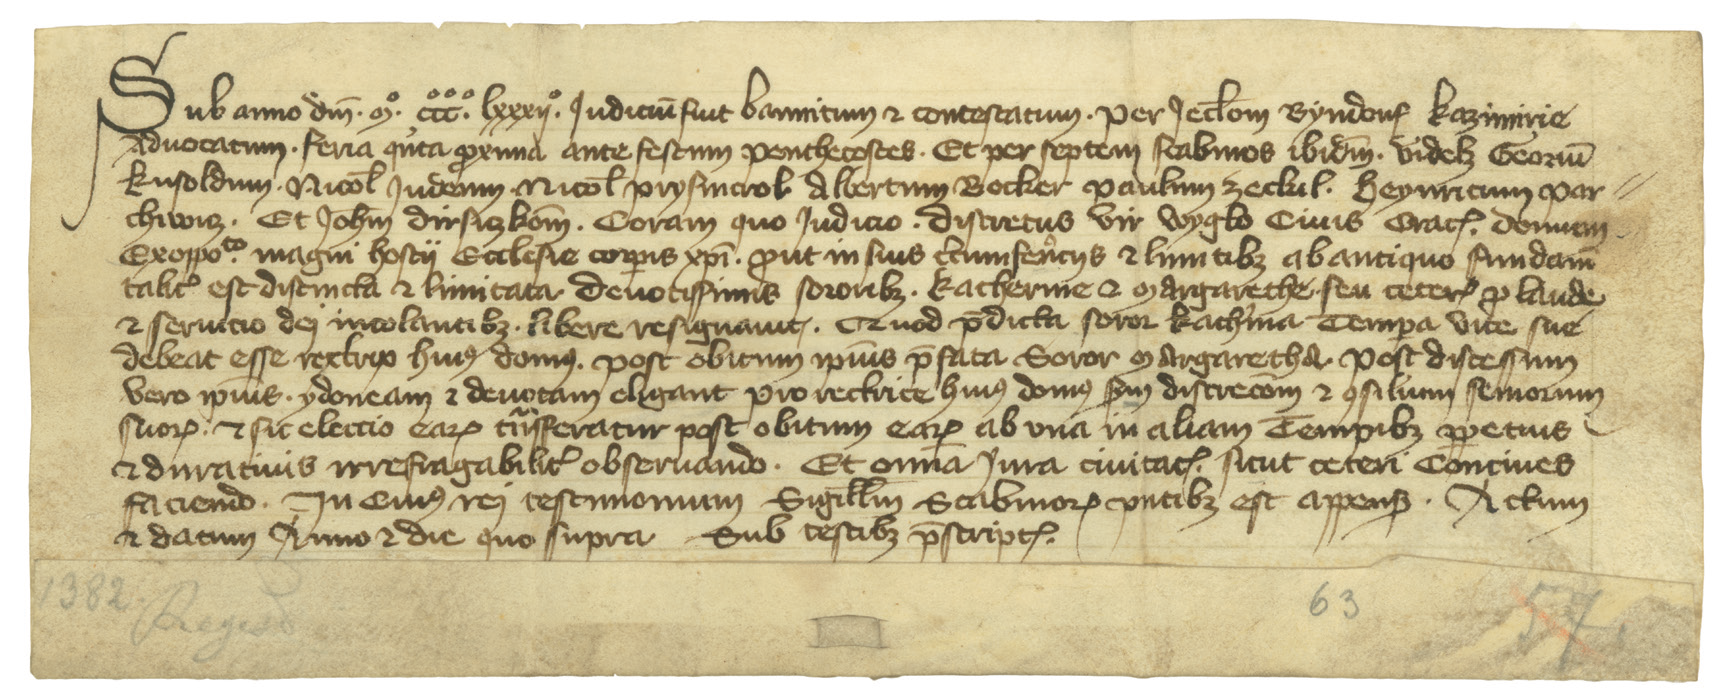 Sub anno dnī. mº. cººcººcº. lxxxijº. Judiciū fuit bannitum ⁊ contestatum. per Jeclōm Byndorf Kazimirie
Aduocatum. feria quīta proxima ante festum penthecostes. Et per septem scabinos ibidm̄. videlz Georiū
Kusoldum. Nicol Judeum. Nicol prysincrol. Albertum Bocker paulum zeclul. Heynricum par
chwicz. Et Johm̄ dirsiczkōm. Coram quo Judicio. discretus vir wyglo Ciuis Crac. domum
Exoppoto magni hostij Ecclesie corpis xpī. prout in suis circumferencijs ⁊ limitibz ab antiquo fundamē
talit est distincta ⁊ limitata. Deuotissimis sororibz. Katherine ⁊ Margarethe. seu ceter pro laude
⁊ seruicio dej incolantibz. libere resignauit. Quod p̄dicta soror Kath'ina Tempa vite sue
debeat esse rectrix huius domus. post obitum ipīus p̄fata Soror Margaretha. Post discessum
vero ipīus. ydoneam ⁊ deuotam eligant pro rectrice huius domus sm̄ discrecōm ⁊ consilium seniorum
suor. ⁊ sic eleccio ear trānsferatur post obitum ear ab vna in aliam Tempibz ppetuis
⁊ duratiuis irrefragabilit obseruando. Et omīa Jura ciuitat. sicut ceteri Conciues
faciendo. In Cuius rej testimonium Sigillm̄ Scabinor pn̄tibz est appens. Actum
⁊ datum Anno ⁊ die quo supra Sub testibz p̄script.
1382.
63
57.